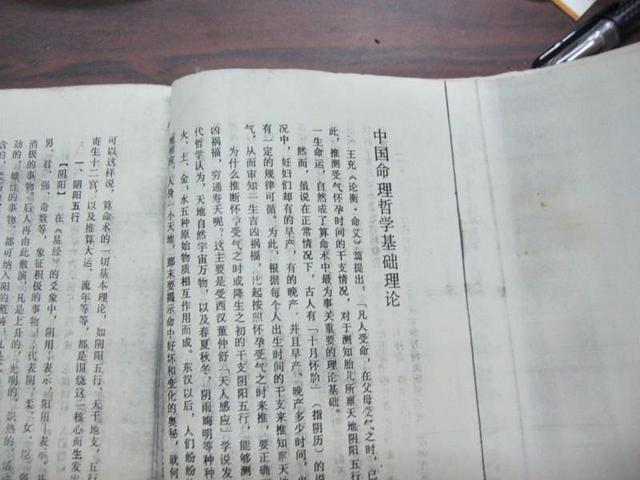 中国命理哲学基础理论
王充《论衡·命义》篇提出，「凡人受命，在父母受气之时，已
此，推测受气怀孕时间的干支情况，对于测知胎儿所禀天地阴阳五行
一生命运，自然成了算命术中最为事关重要的理论基础。
然而，虽说在正常情况下，古人有「十月怀胎」（指阴历）的说
况中，妊妇们却有的早产，有的晚产，并且早产、晚产多少时间，
有一定的规律可循。为此，根据每个人出生时间的干支来推知
气，从而审知一生吉凶祸福，比起按照怀孕受气之时来推，要正确
为什么推断怀孕受气之时或降生之初的干支阴阳五行，能够测
凶祸福，穷通寿夭呢？这主要是受西汉董仲舒「天人感应」学说发
代哲学认为，天地自然宇宙万物，以及春夏秋冬，阴雨晦明等种种
火、土、金、水五种原始物质相互作用而成。东汉以后，人们纷纷
人身一小天地，那末要揭示命中好坏和变化的奥秘，就
可以这样说，算命术的一切基本理论，如阴阳五行，天干地支，五行
寄生十二宫，以及推算大运、流年等等，都是围绕这一核心而生发
一、阴阳五行
【阴阳】 在《易经》的爻象中，阴用 表示，阳用 表示。
男、君、强、奇数等，象征积极的事物。 代表阴、柔、女、臣、弱
消极的事物。后人再由此敷演，凡是上升的、光明的、
劲的、雄性的事物，都可纳入阳的范畴